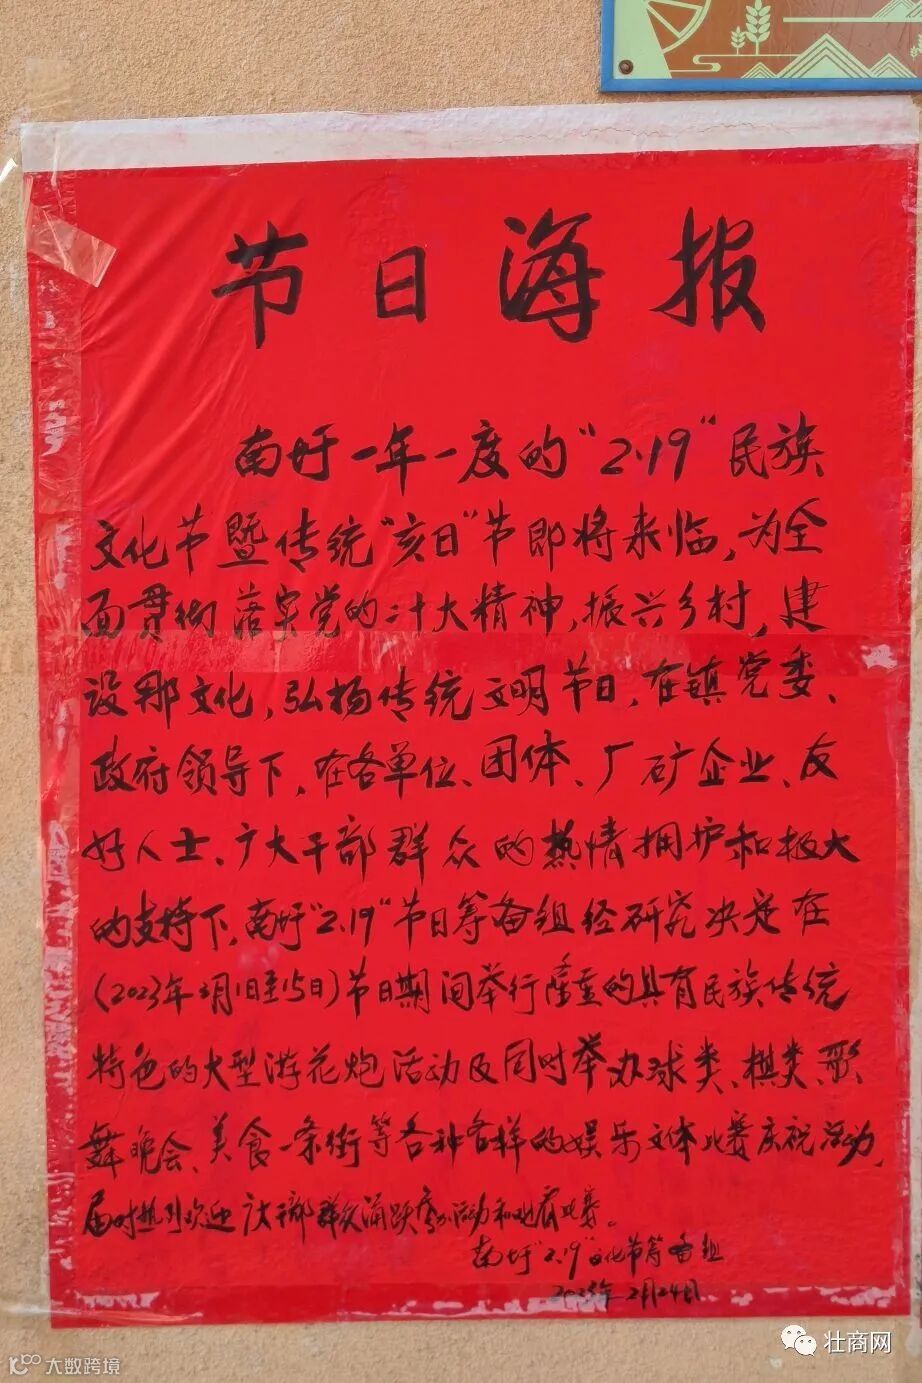 节日海报
南圩一年一度的“2.19”民族
文化节暨传统“亥日”节即将来临,为全
面贯彻落实党的二十大精神,振兴乡村,建
设那文化,弘扬传统文明节日,在镇党委、
政府领导下,在各单位、团体、厂矿企业、友
好人士、广大干部群众的热情拥护和极大
的支持下,南圩“2.19”节日筹备组经研究决定在
(2023年3月1日至15日)节日期间举行隆重的具有民族传统
特色的大型游花炮活动及同时举办球类、棋类、歌
舞晚会、美食一条街等各种各样的娱乐文体比赛庆祝活动,
届时热烈欢迎广大干部群众踊跃参加活动和观看比赛。
南圩“2.19”文化节筹备组
2023年2月24日
壮商网
大数跨境